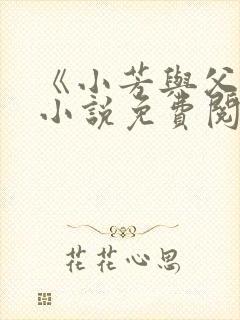 《小芳與父
小說免費閱
花花心思